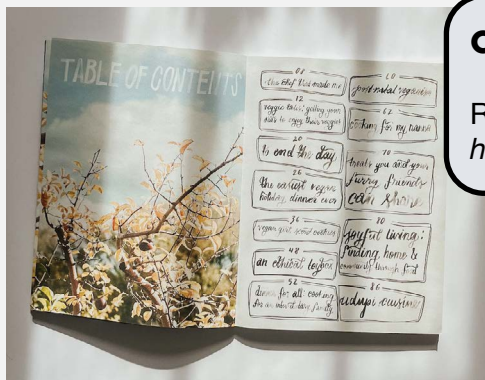 TABLE OF CONTENTS
08
the chef that made me
12
veggie tales: getting your
kids to enjoy their veggies
20
to end the day
26
the easiest vegan
holiday dinner ever
36
vegan girl scout cookies
48
an ethical toybox
52
dinner for all: cooking
for an family
60
post natal
62
cooking for my nannie
70
treats you and your
furry friends
can share
80
joyful living:
finding home &
community through food
86
udupi cuisine
R
h